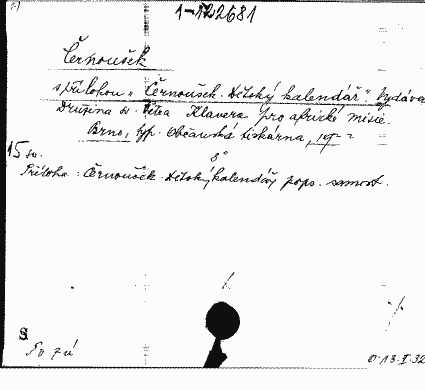 1-122681
Černoušek
s přílohou „Černoušek. Dětský kalendář". Vydáva
Družina sv. Petra Klavera pro africké misie.
Brno, typ. Občanská tiskárna, 19
15 sv. 8°
Příloha: Černoušek. Dětský kalendář pops. samost.
S
13.II.32